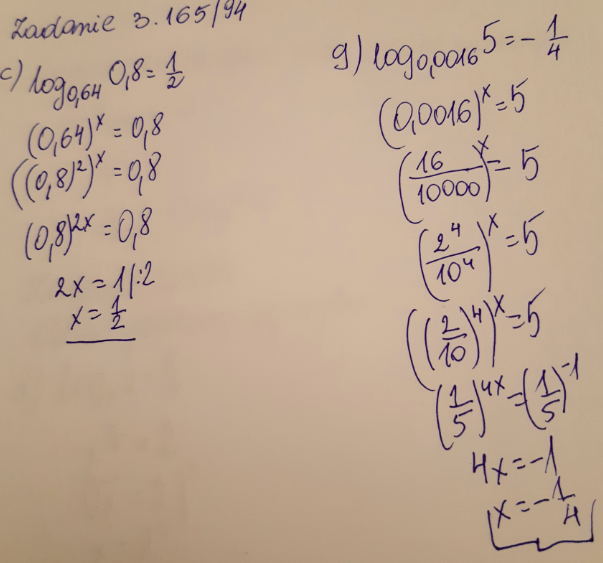 Zadanie 3.165/94
c) log₀,₆₄ 0,8 = 1/2
(0,64)ˣ = 0,8
((0,8)²)ˣ = 0,8
(0,8)²ˣ = 0,8
2x = 1 |:2
x = 1/2
g) log₀,₀₀₁₆ 5 = - 1/4
(0,0016)ˣ = 5
(16/10000)ˣ = 5
(2⁴/10⁴)ˣ = 5
((2/10)⁴)ˣ = 5
(1/5)⁴ˣ = (1/5)⁻¹
4x = -1
x = - 1/4